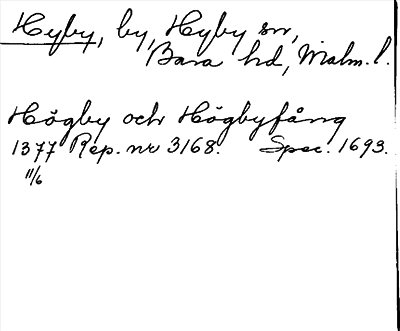 Hyby, by, Hyby sn,
Bara hd, Malm. l.
Högby och Högbyfång
1377 Rep. nr 3168. Spec. 1693.
11/6